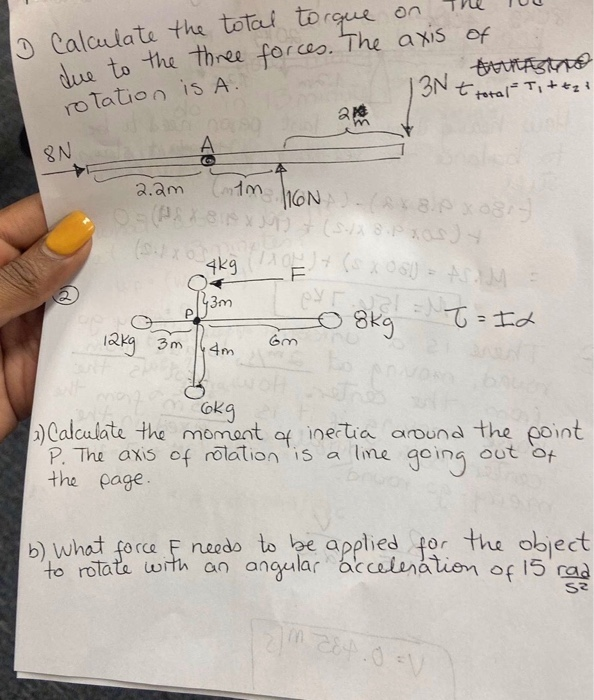 ① Calculate the total torque on the rod
due to the three forces. The axis of
rotation is A.
3N
t total = T1 + t2 +
2m
8N
A
2.2m
1m
16N
②
4kg
F
3m
P
8kg
τ = Iα
12kg
3m
4m
6m
6kg
a) Calculate the moment of inertia around the point
P. The axis of rotation is a line going out of
the page.
b) What force F needs to be applied for the object
to rotate with an angular acceleration of 15 rad/s²